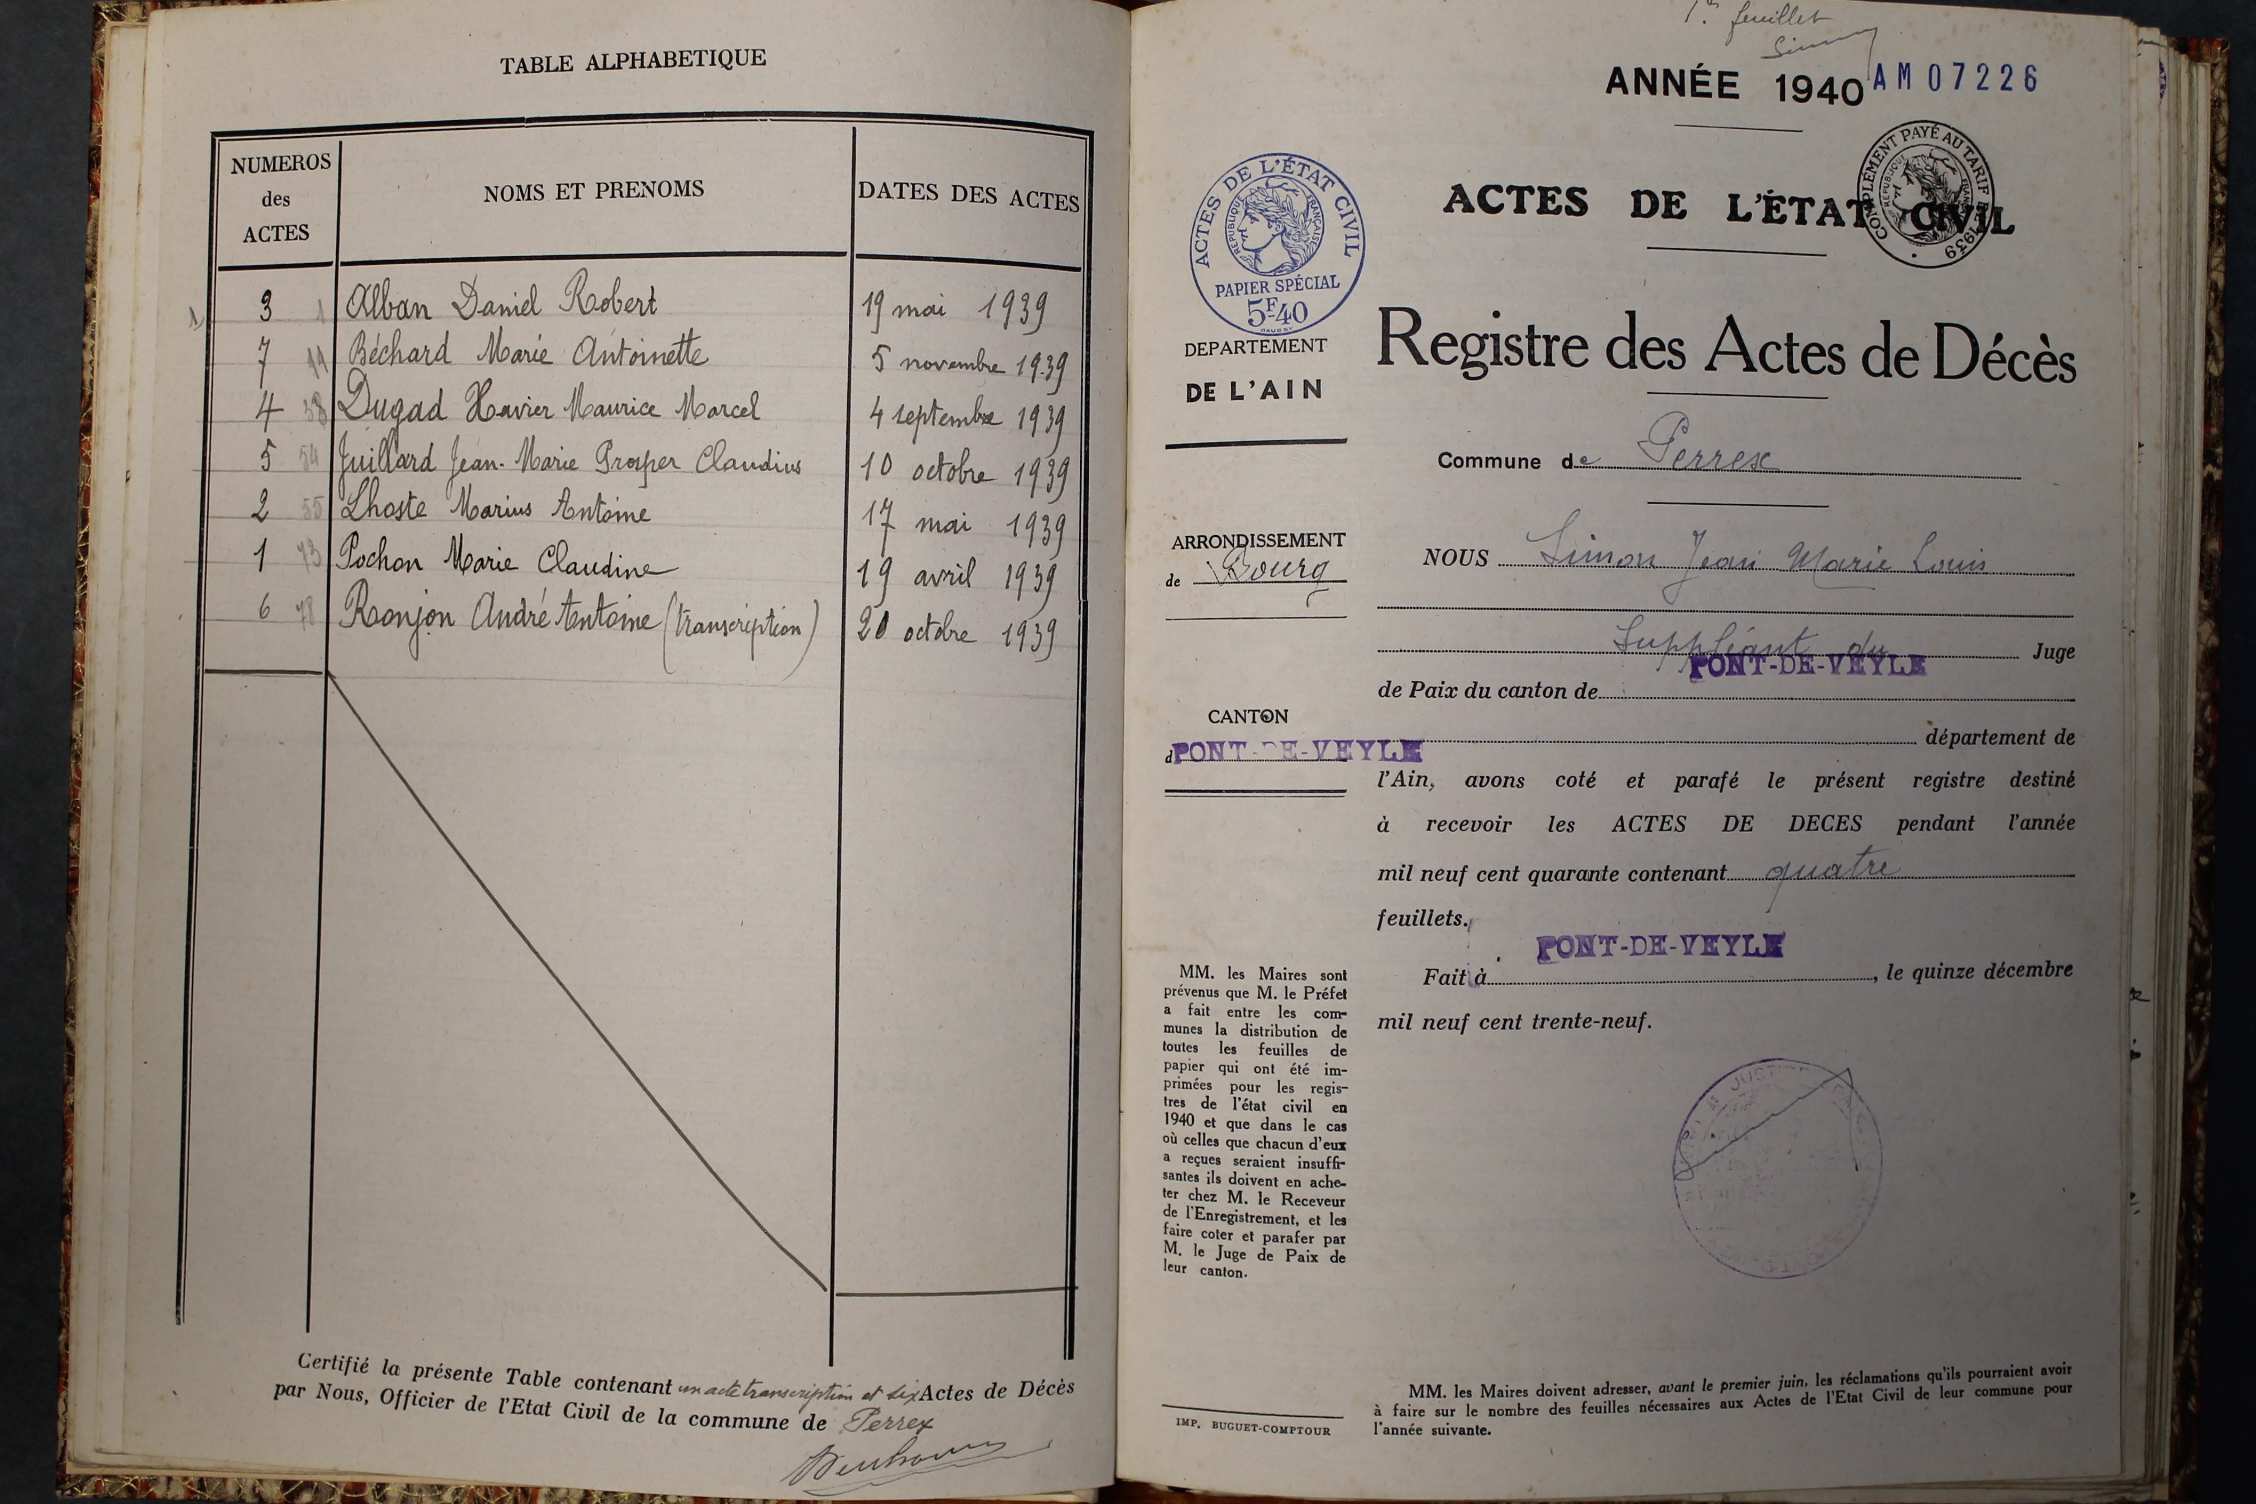 TABLE ALPHABETIQUE
NUMEROS des ACTES
NOMS ET PRENOMS
DATES DES ACTES
3 1 Alban Daniel Robert 19 mai 1939
7 11 Béchard Marie Antoinette 5 novembre 1939
4 38 Dugad Xavier Maurice Marcel 4 septembre 1939
5 54 Juillard Jean-Marie Prosper Claudius 10 octobre 1939
2 55 Lhoste Marius Antoine 17 mai 1939
1 73 Pochon Marie Claudine 19 avril 1939
6 78 Ronjon André Antoine (transcription) 20 octobre 1939
Certifié la présente Table contenant un acte transcription et six Actes de Décès
par Nous, Officier de l'Etat Civil de la commune de Perrex
1er feuillet
Simon
ANNÉE 1940
AM07226
COMPLÉMENT PAYÉ AU TARIF 1939
RÉPUBLIQUE FRANÇAISE
ACTES DE L'ÉTAT CIVIL
ACTES DE L'ÉTAT CIVIL
RÉPUBLIQUE FRANÇAISE
PAPIER SPÉCIAL
5F40
DEPARTEMENT
DE L'AIN
ARRONDISSEMENT
de Bourg
CANTON
d PONT-DE-VEYLE
MM. les Maires sont
prévenus que M. le Préfet
a fait entre les com-
munes la distribution de
toutes les feuilles de
papier qui ont été im-
primées pour les regis-
tres de l'état civil en
1940 et que dans le cas
où celles que chacun d'eux
a reçues seraient insuffi-
santes ils doivent en ache-
ter chez M. le Receveur
de l'Enregistrement, et les
faire coter et parafer par
M. le Juge de Paix de
leur canton.
IMP. BUGUET-COMPTOUR
Registre des Actes de Décès
Commune de Perrex
NOUS Simon Jean Marie Louis
Suppléant du Juge
de Paix du canton de PONT-DE-VEYLE
département de
l'Ain, avons coté et parafé le présent registre destiné
à recevoir les ACTES DE DECES pendant l'année
mil neuf cent quarante contenant quatre
feuillets.
Fait à PONT-DE-VEYLE, le quinze décembre
mil neuf cent trente-neuf.
MM. les Maires doivent adresser, avant le premier juin, les réclamations qu'ils pourraient avoir
à faire sur le nombre des feuilles nécessaires aux Actes de l'Etat Civil de leur commune pour
l'année suivante.